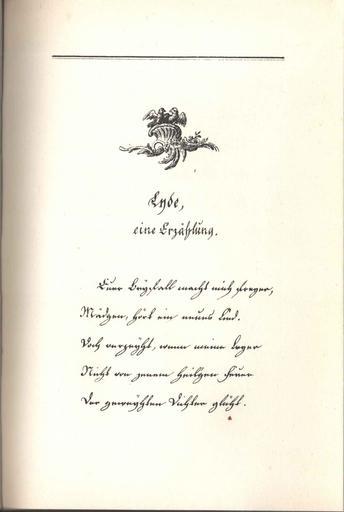 Lyde,
eine Erzählung.
Euer Beyfall macht mich freyer,
Mädgen, hört ein neues Lied.
Doch verzeyht, wenn meine Leyer
Nicht von jenem heilgen Feuer
Der geweyhten Dichter glüht.